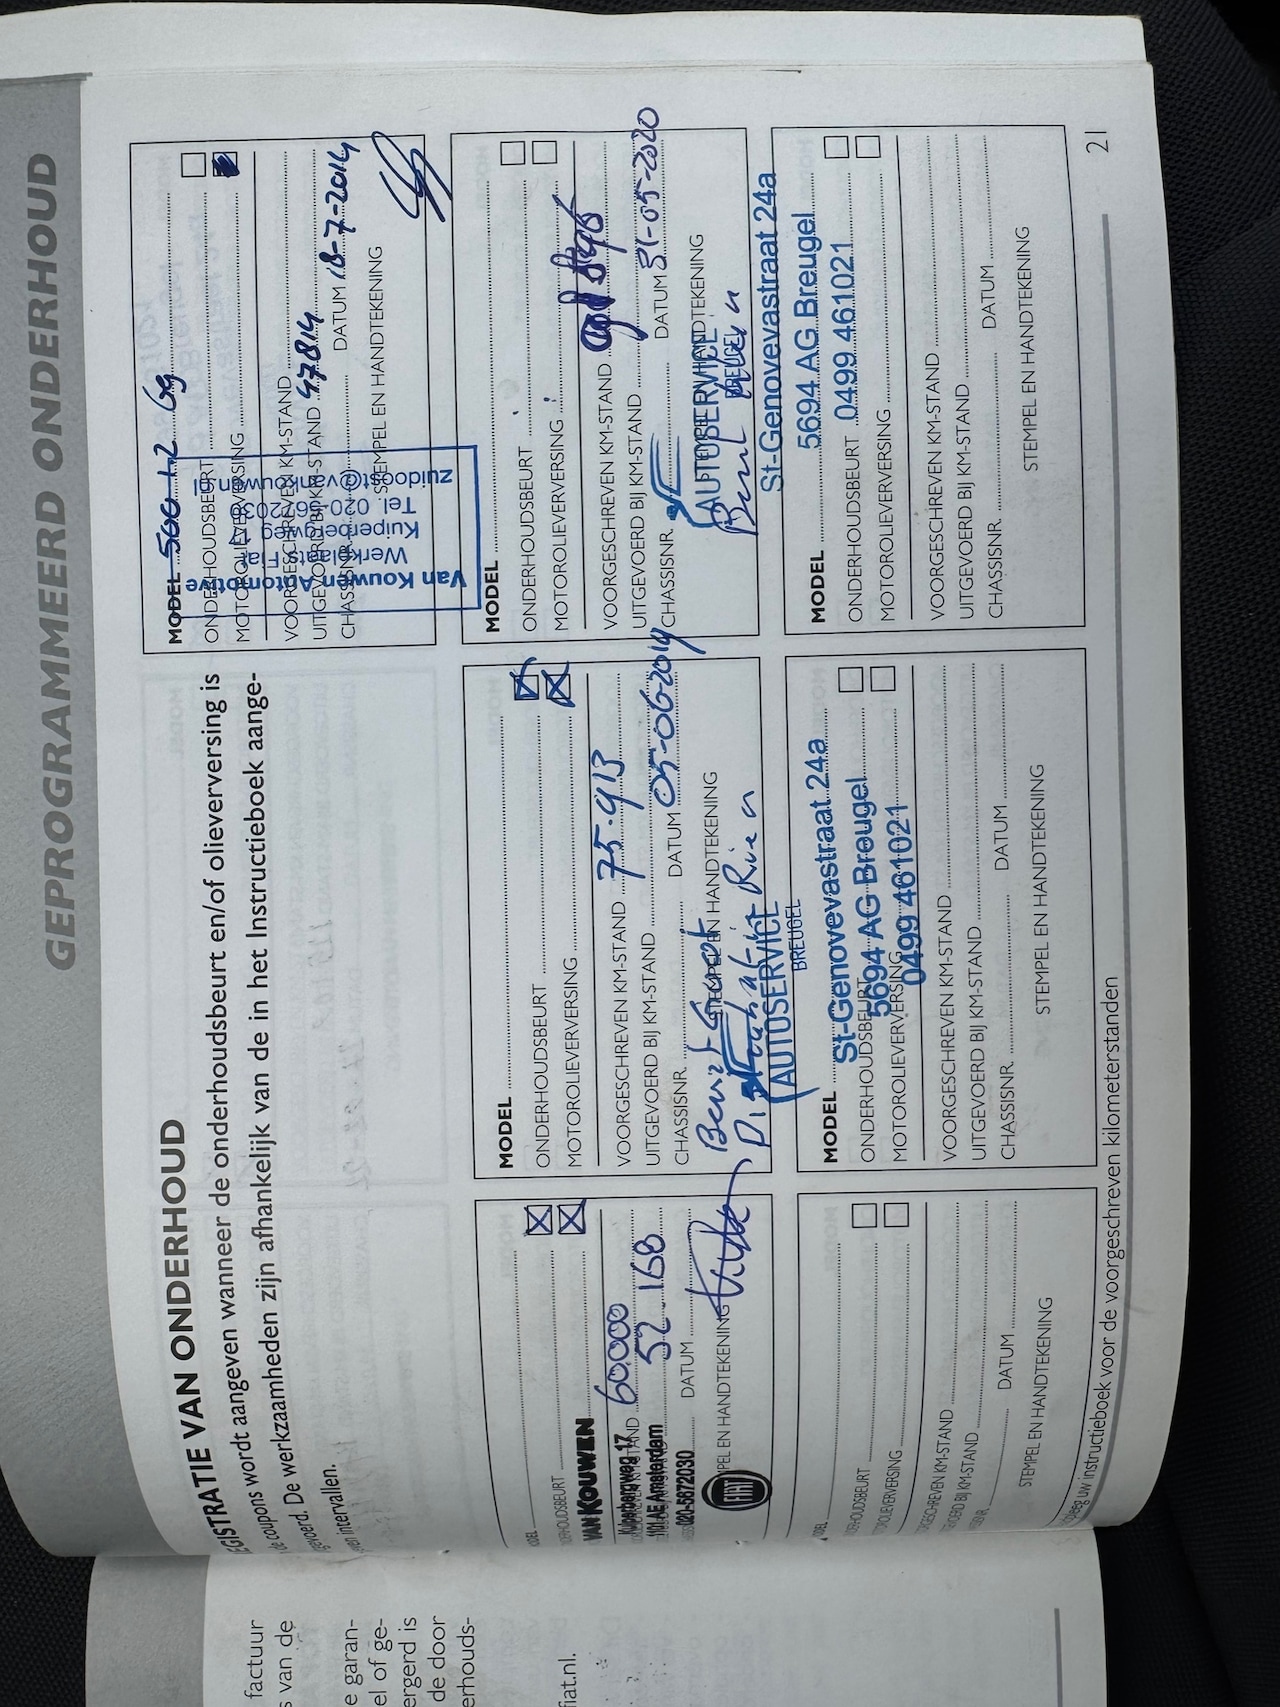 GEPROGRAMMEERD ONDERHOUD
EGISTRATIE VAN ONDERHOUD
de coupons wordt aangeven wanneer de onderhoudsbeurt en/of olieversing is
gevoerd. De werkzaamheden zijn afhankelijk van de in het Instructieboek aange-
ven intervallen.
MODEL 500 1.2 69
ONDERHOUDSBEURT
MOTOROLIEVERVERSING
VOORGESCHREVEN KM-STAND
UITGEVOERD BIJ KM-STAND 47.814
CHASSISNR. DATUM 18-7-2014
STEMPEL EN HANDTEKENING
Van Kouwen Automotive
Werkplaats Fiat
Kuiperbergweg 17
Tel. 020-5672030
zuidoost@vankouwen.nl
ODEL
DERHOUDSBEURT
VAN KOUWEN
Kuiperbergweg 17
1101 AE Amsterdam
020-5672030
KM-STAND 60.000
52.168
DATUM
PEL EN HANDTEKENING
FIAT
MODEL
ONDERHOUDSBEURT
MOTOROLIEVERVERSING
VOORGESCHREVEN KM-STAND 75.913
UITGEVOERD BIJ KM-STAND
CHASSISNR. DATUM 05-06-2019
STEMPEL EN HANDTEKENING
Beurt Groot
Distributie Riem
AUTOSERVICE
BREUGEL
MODEL
ONDERHOUDSBEURT
MOTOROLIEVERVERSING
VOORGESCHREVEN KM-STAND
UITGEVOERD BIJ KM-STAND
CHASSISNR. DATUM 31-05-2020
STEMPEL EN HANDTEKENING
AUTOSERVICE
BREUGEL
Beurt
ODEL
DERHOUDSBEURT
OTOROLIEVERVERSING
ORGESCHREVEN KM-STAND
VOERD BIJ KM-STAND
DATUM
STEMPEL EN HANDTEKENING
MODEL
St-Genovevastraat 24a
ONDERHOUDSBEURT
5694 AG Breugel
MOTOROLIEVERVERSING
0499 461021
VOORGESCHREVEN KM-STAND
UITGEVOERD BIJ KM-STAND
CHASSISNR. DATUM
STEMPEL EN HANDTEKENING
St-Genovevastraat 24a
5694 AG Breugel
MODEL
0499 461021
ONDERHOUDSBEURT
MOTOROLIEVERVERSING
VOORGESCHREVEN KM-STAND
UITGEVOERD BIJ KM-STAND
CHASSISNR. DATUM
STEMPEL EN HANDTEKENING
pleeg uw instructieboek voor de voorgeschreven kilometerstanden
21
factuur
s van de
e garan-
el of ge-
ergerd is
de door
erhouds-
fiat.nl.